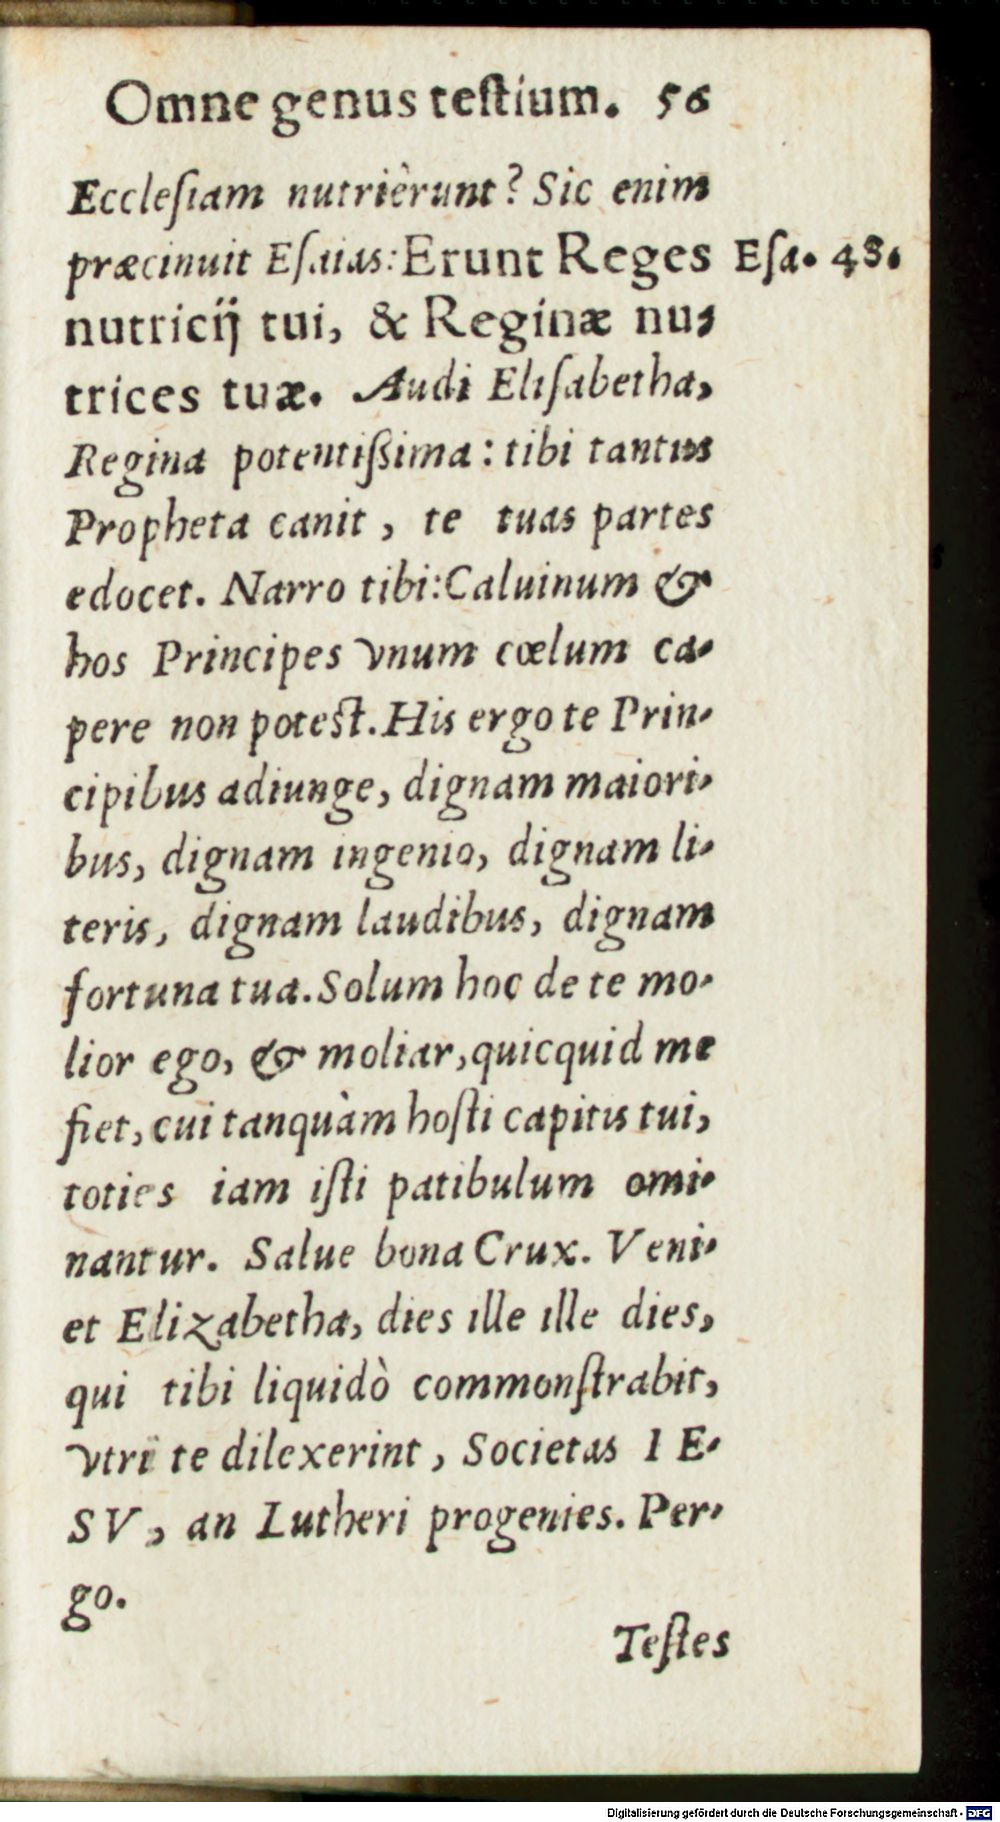 Omne genus testium. 56
Ecclesiam nutrièrunt? Sic enim
præcinuit Esaias: Erunt Reges Esa. 48.
nutricij tui, & Reginæ nu-
trices tuæ. Audi Elisabetha,
Regina potentißima: tibi tantus
Propheta canit, te tuas partes
edocet. Narro tibi: Caluinum &
hos Principes vnum cœlum ca-
pere non potest. His ergo te Prin-
cipibus adiunge, dignam maiori-
bus, dignam ingenio, dignam li-
teris, dignam laudibus, dignam
fortuna tua. Solum hoc de te mo-
lior ego, & moliar, quicquid me
fiet, cui tanquàm hosti capitis tui,
toties iam isti patibulum omi-
nantur. Salue bona Crux. Veni-
et Elizabetha, dies ille ille dies,
qui tibi liquidò commonstrabit,
vtri te dilexerint, Societas IE-
SV, an Lutheri progenies. Per-
go.
Testes
Digitalisierung gefördert durch die Deutsche Forschungsgemeinschaft - DFG